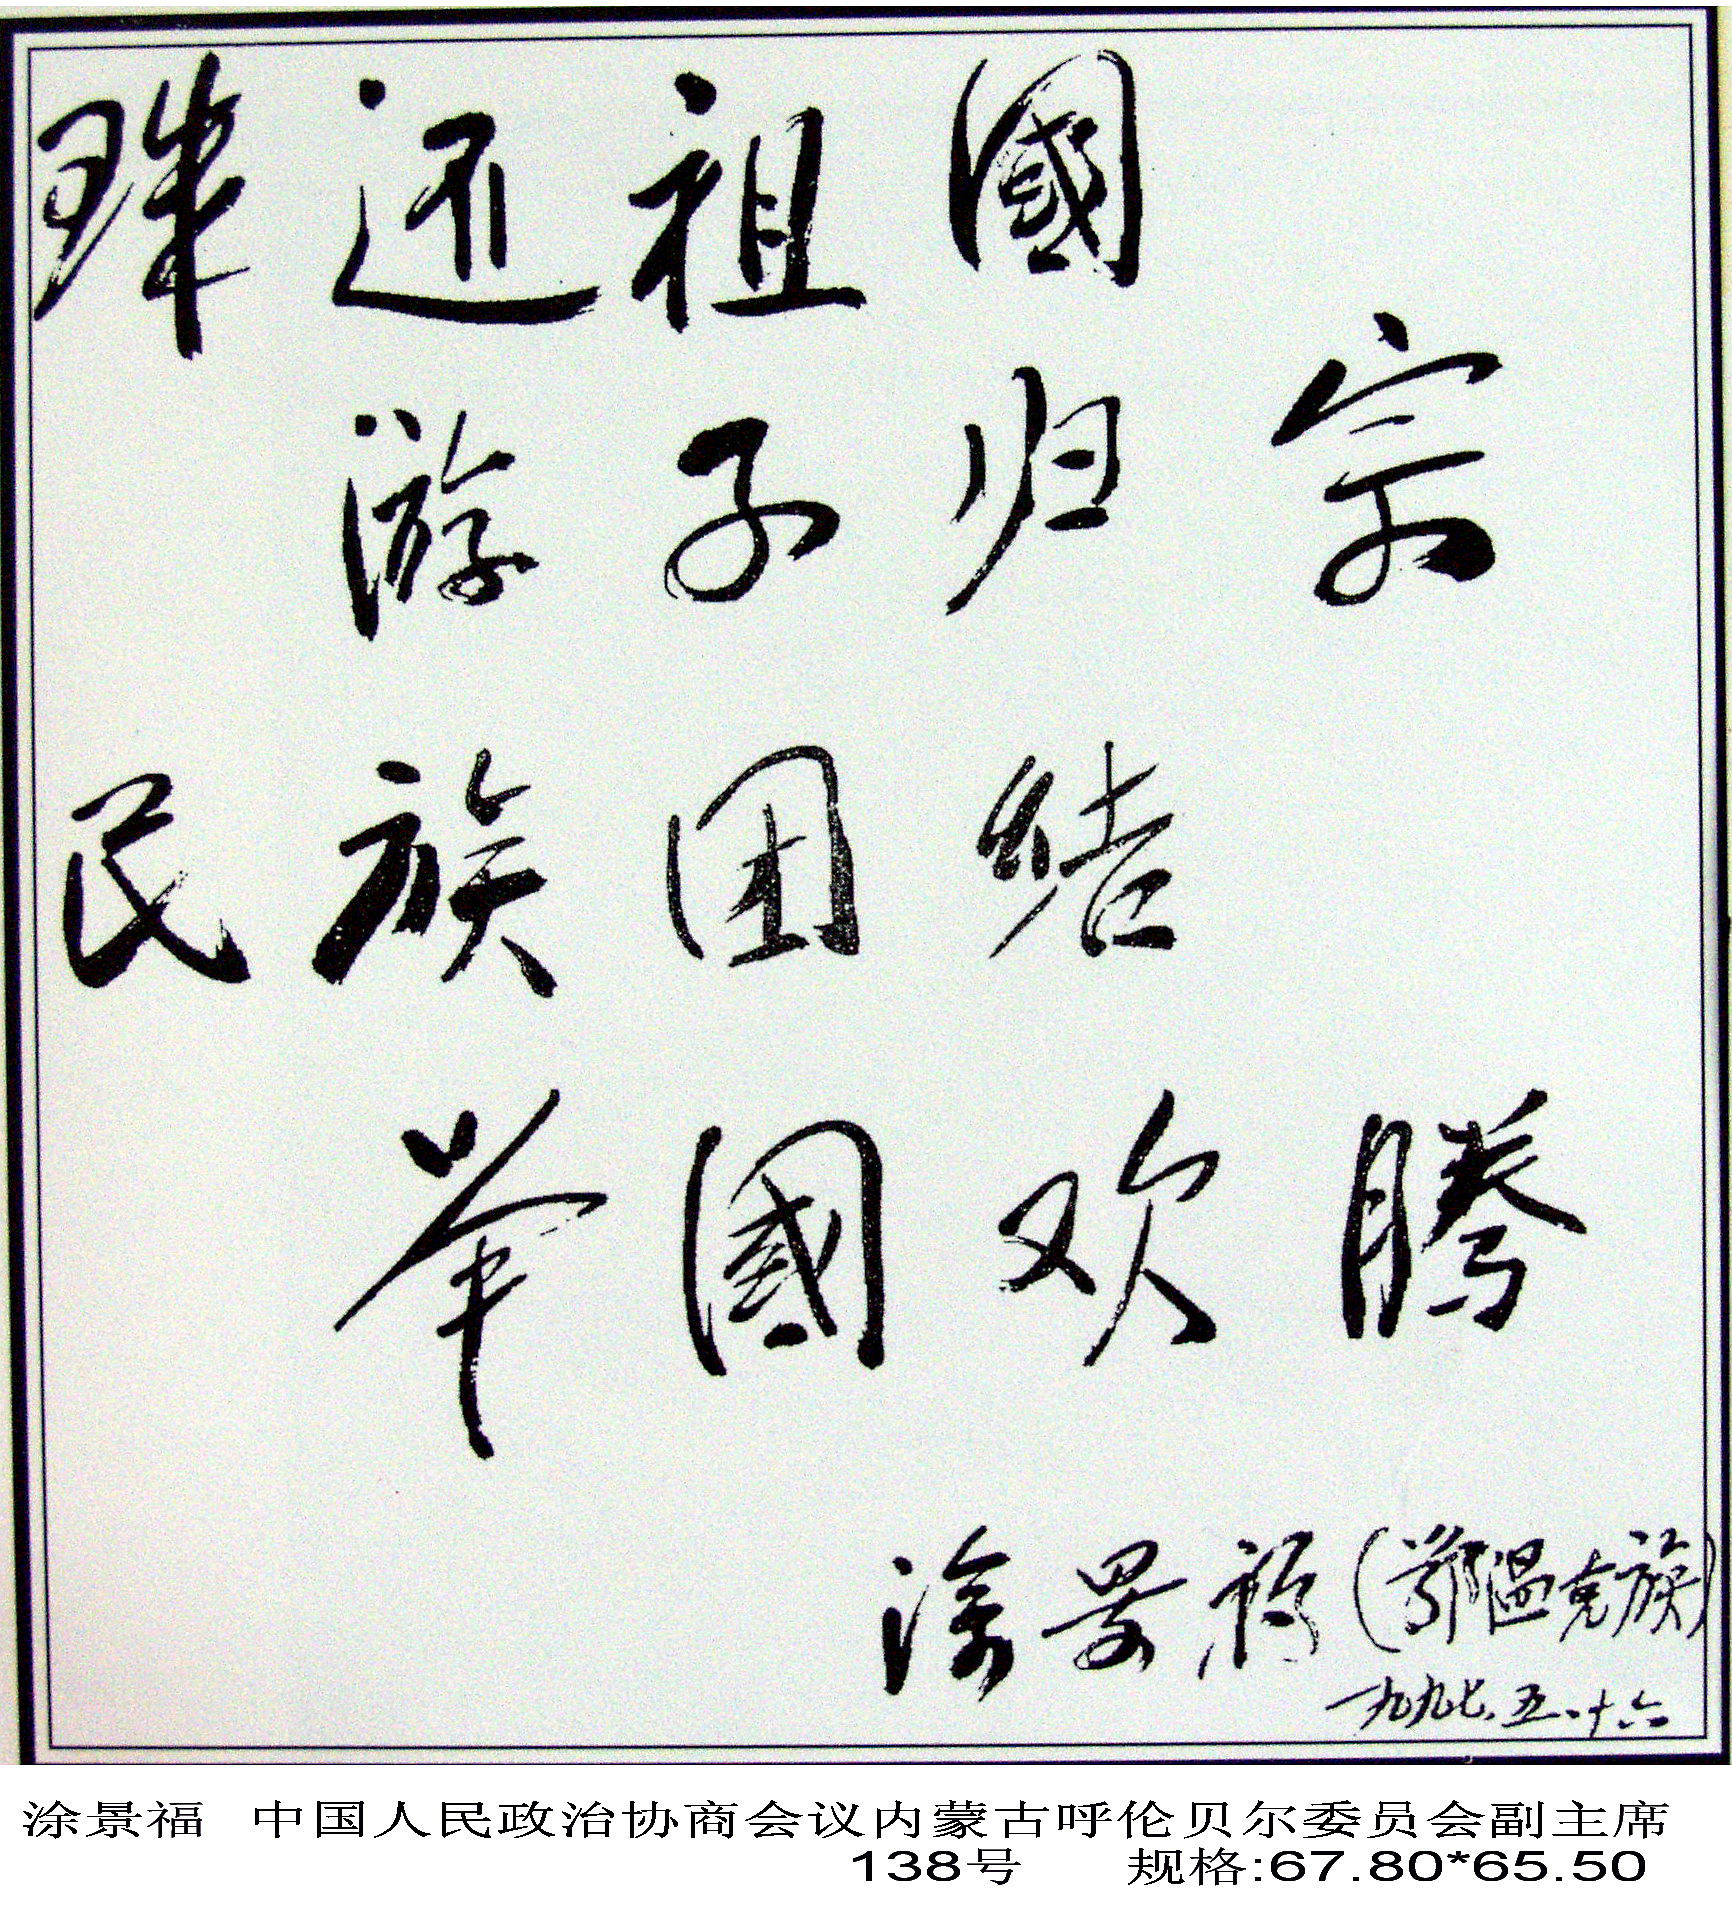 珠还祖國
游子归宗
民族团结
举國欢腾
涂景福(鄂温克族)
一九九七.五.十六
涂景福 中国人民政治协商会议内蒙古呼伦贝尔委员会副主席
138号 规格:67.80*65.50